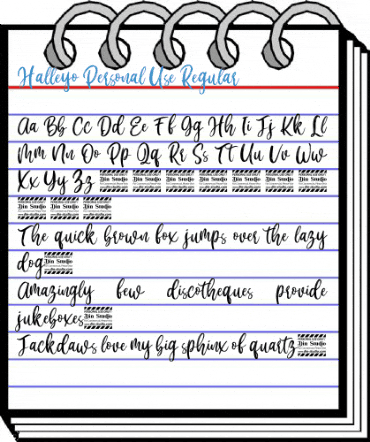 Halleyo Personal Use Regular
Aa Bb Cc Dd Ee Ff Gg Hh Ii Jj Kk Ll
Mm Nn Oo Pp Qq Rr Ss Tt Uu Vv Ww
Xx Yy Zz
The quick brown fox jumps over the lazy
dog
Amazingly few discotheques provide
jukeboxes
Jackdaws love my big sphinx of quartz